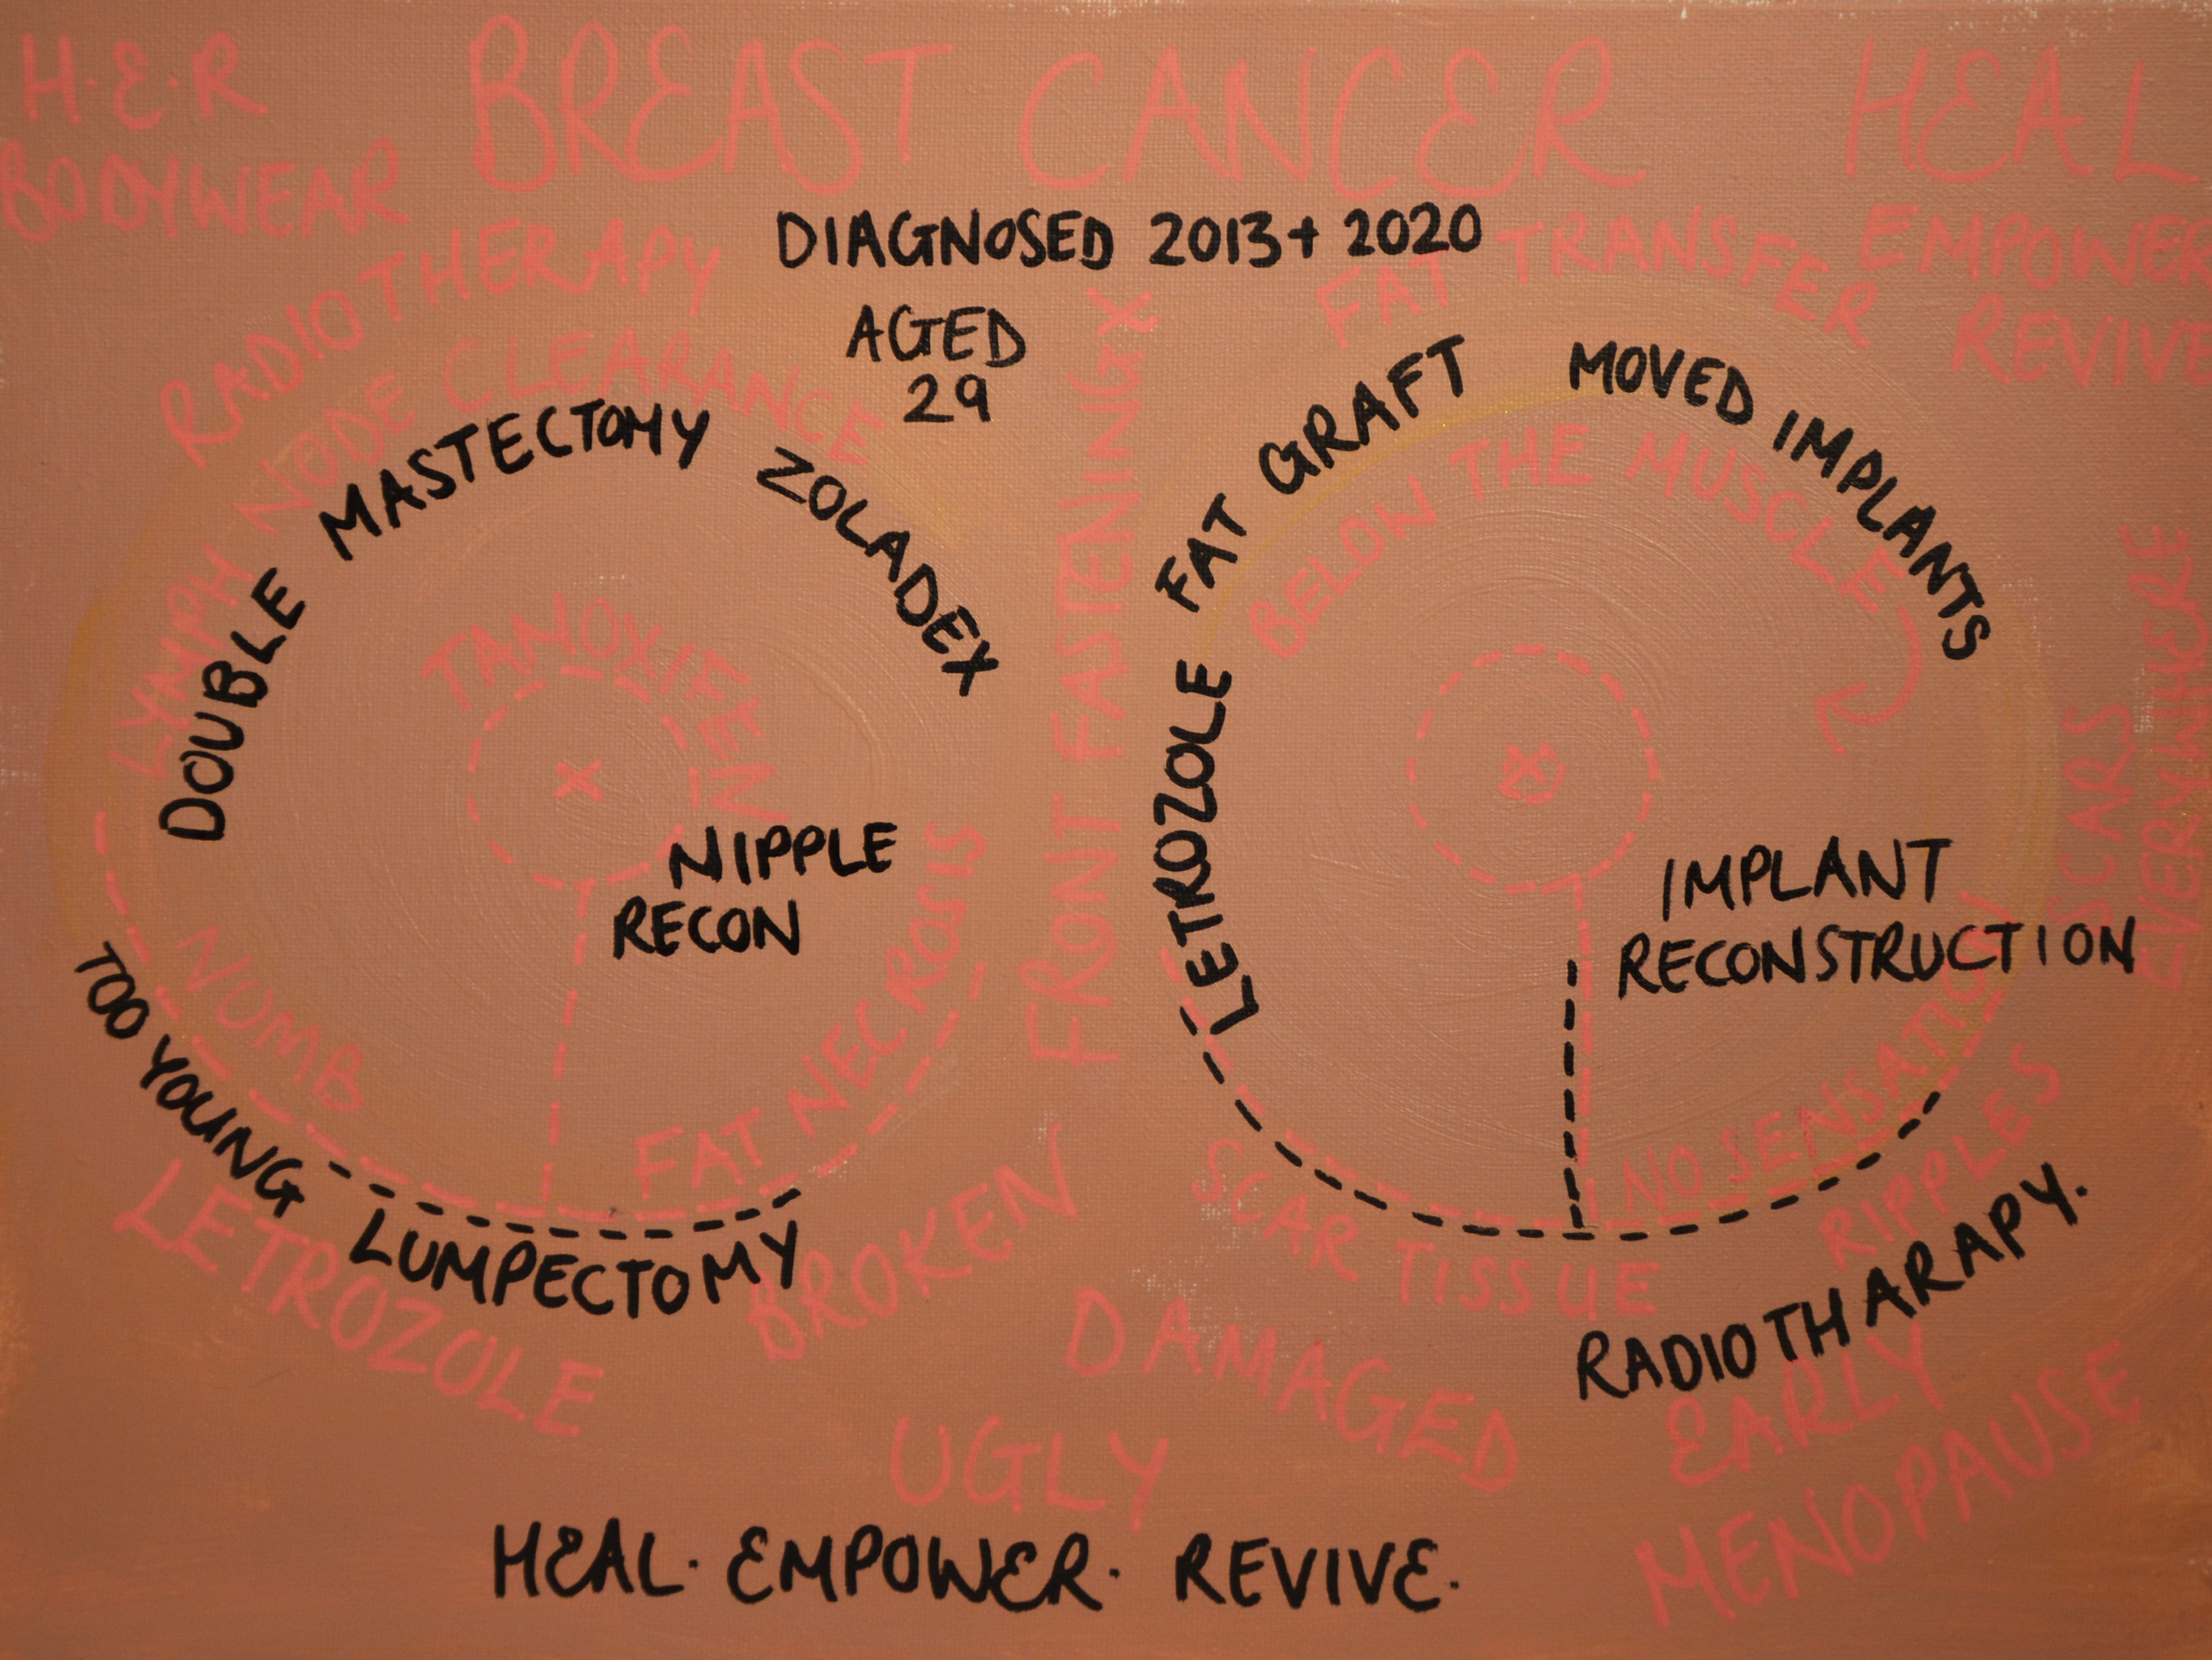 H.E.R
BODYWEAR
BREAST CANCER
HEAL
EMPOWER
REVIVE
DIAGNOSED 2013+ 2020
AGED
29
RADIOTHERAPY
LYMPH NODE CLEARANCE
DOUBLE MASTECTOMY ZOLADEX
TAMOXIFEN
X
NIPPLE
RECON
NUMB
FAT NECROSIS
TOO YOUNG LUMPECTOMY
LETROZOLE
FRONT FASTENING X
FAT TRANSFER
LETROZOLE FAT GRAFT MOVED IMPLANTS
BELOW THE MUSCLE
X
IMPLANT
RECONSTRUCTION
SCARS
EVERYWHERE
NO SENSATION
RIPPLES
SCAR TISSUE
RADIOTHARAPY.
BROKEN
DAMAGED
UGLY
EARLY
MENOPAUSE
HEAL. EMPOWER. REVIVE.